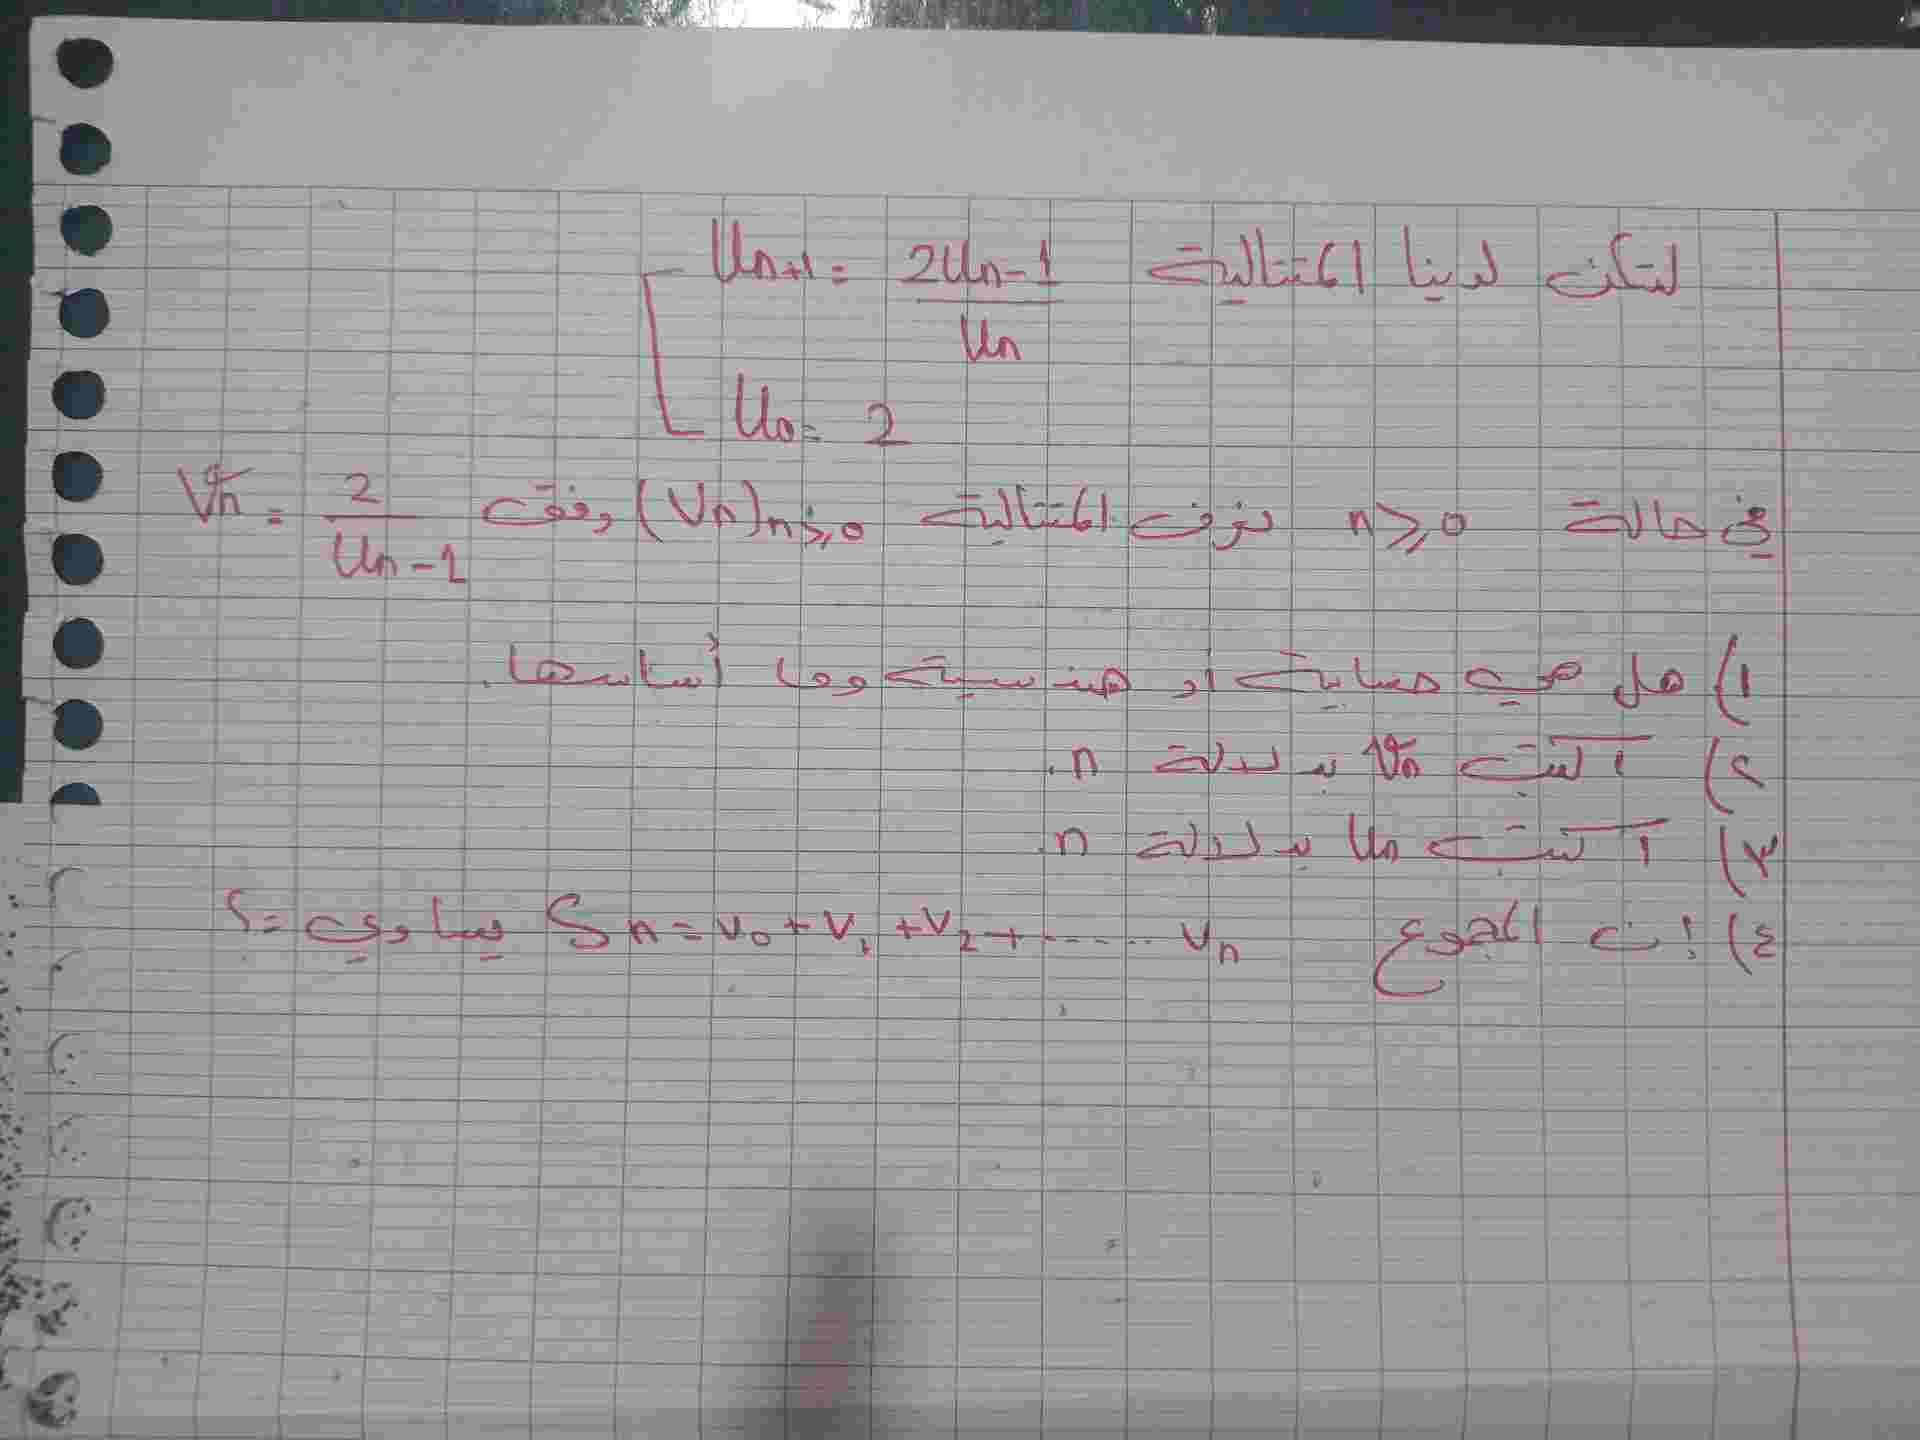 لتكن لدينا المتتالية Un+1 = (2Un-1)/Un
U0 = 2
في حالة n ⩾ 0 نعرف المتتالية (Vn)n⩾0 وفق Vn = 2/(Un-1)
١) هل هي حسابية أو هندسية وما أساسها.
٢) اكتب Vn بدلالة n.
٣) اكتب Un بدلالة n.
٤) إن المجموع Sn = V0 + V1 + V2 + ...... Vn يساوي =؟